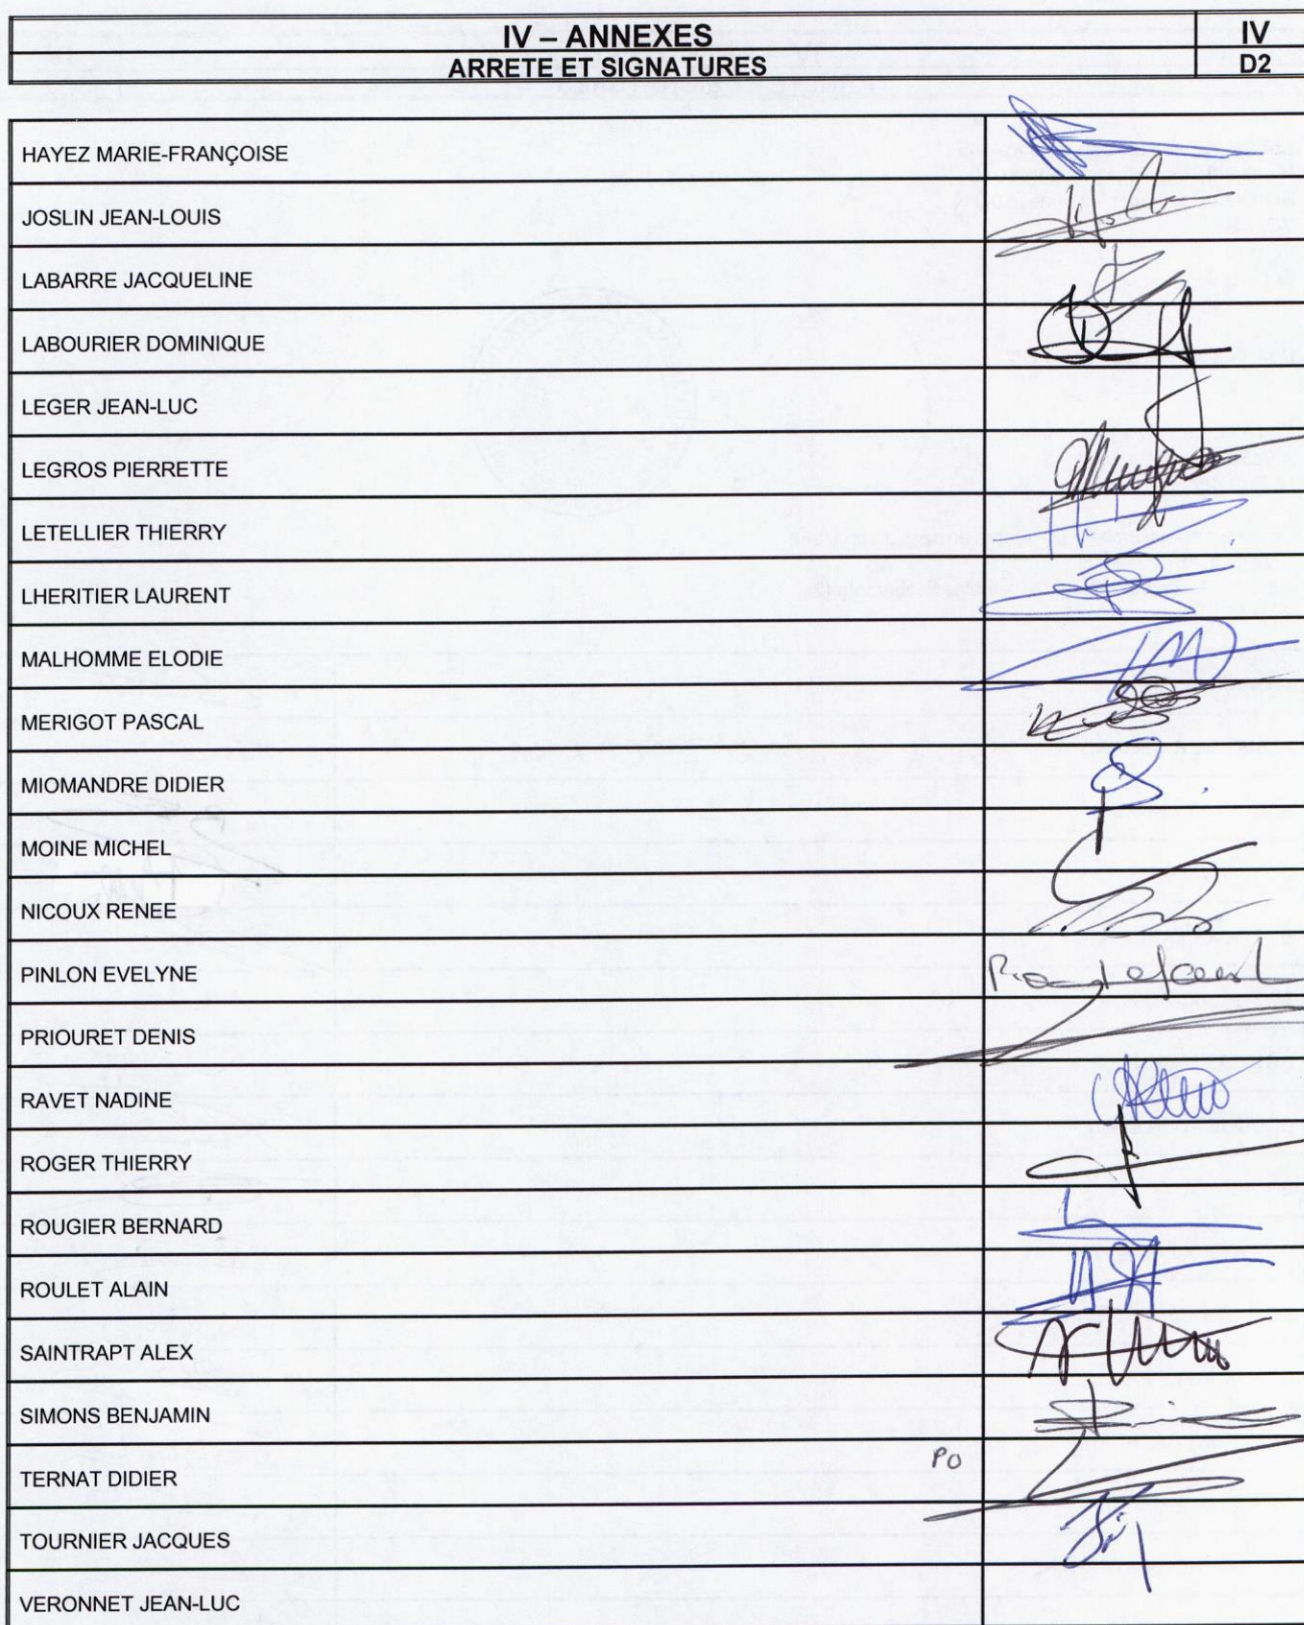 IV – ANNEXES
IV
ARRETE ET SIGNATURES
D2
HAYEZ MARIE-FRANÇOISE
JOSLIN JEAN-LOUIS
LABARRE JACQUELINE
LABOURIER DOMINIQUE
LEGER JEAN-LUC
LEGROS PIERRETTE
LETELLIER THIERRY
LHERITIER LAURENT
MALHOMME ELODIE
MERIGOT PASCAL
MIOMANDRE DIDIER
MOINE MICHEL
NICOUX RENEE
PINLON EVELYNE
PRIOURET DENIS
RAVET NADINE
ROGER THIERRY
ROUGIER BERNARD
ROULET ALAIN
SAINTRAPT ALEX
SIMONS BENJAMIN
TERNAT DIDIER PO
TOURNIER JACQUES
VERONNET JEAN-LUC